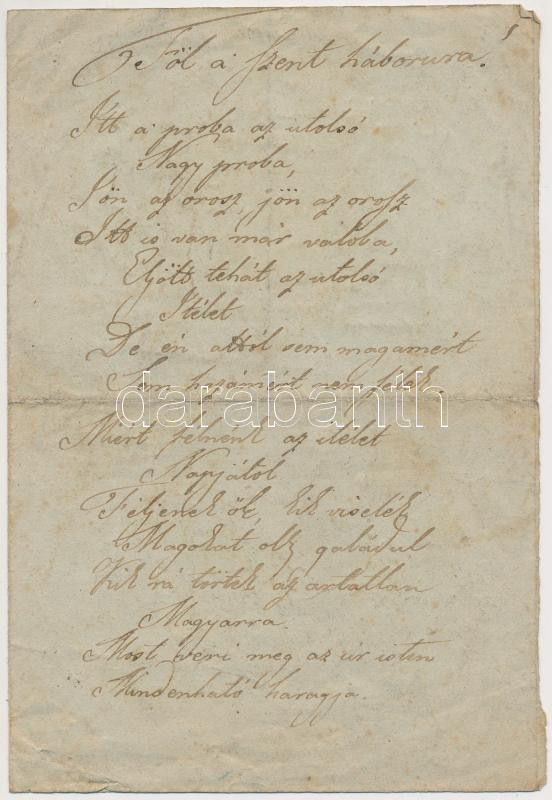 Föl a szent háborura!
Itt a proba az utolsó
Nagy proba,
Jön az orosz, jön az orosz
Itt is van már valoba,
Eljött tehát az utolsó
Itélet
De én attól sem magamért
Sem hazámért nem félek.
darabanth
Miért félnénk az itélet
Napjátol
Féljenek ők, kik viselék
Magokat oly galádul
Kik rá törtek az artatlan
Magyarra.
Most veri meg az úr isten
Mindenható haragja.